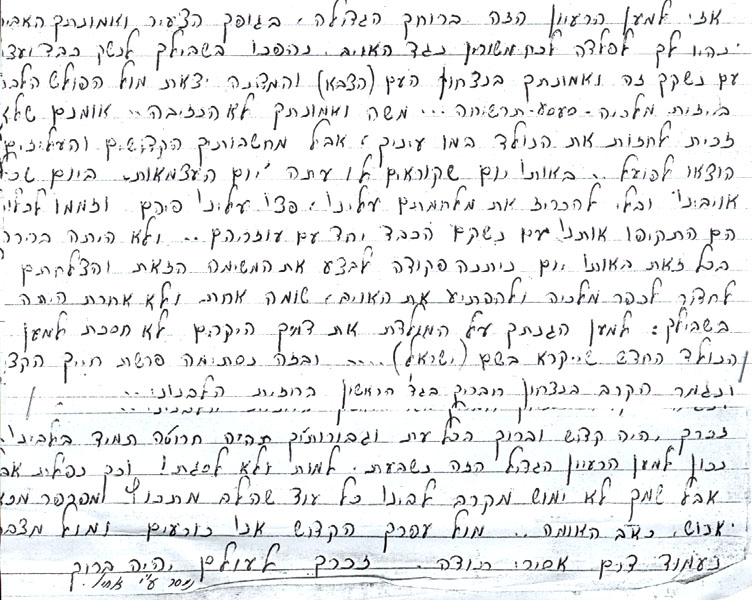 אזי למען הרעיון הזה ברוחך הגדולה, בגופך הצעיר ואמונתך
היו לך לפלדה לכח משוריין נגד האויב. נהפכו בשבילך לנשק כבד
עם נשקך זה ואמונתך בנצחון העם (הצבא) והמדינה יצאת מול הפולש
בחזית מלכיה - ... משה ואמונתך לא הכזיבה.. אומנם שלא
זכית לחזות את הנולד במו עיניך, אבל מחשבותיך הקדושים והעליזים
הוצאו לפועל.. באותו יום שקוראים לו עתה "יום העצמאות". ביום
אויבינו ובלי להכריז את מלחמתם עלינו, פצו עלינו פיהם וזממו
הם התקיפו אותנו עם נשקם הכבד יחד עם עוזריהם.. ולא היתה ברירה
בכל זאת באותו יום ניתנה פקודה לבצע את המשימה הזאת והצלחתם
לחדור לכפר מלכיה ולהפתיע את האויב, שומה אחת ולא אחרת היתה
בשבילך: למען הגנתך על המולדת את דמיך היקרים לא חסכת למען
הנולד החדש שייקרא בשם (ישראל).... ובזה נסתימה פרשת חייך
ונגמר הקרב בנצחון חבריך בגד' הראשון בחזית הלבנוני...
זכרך יהיה קדוש וברוך בכל עת וגבורותיך תהיה חרוטה תמיד בלבינו
נכון למען הרעיון הגדול הזה נשבעת. למות ולא לסגת! וכך נפלת
אבל שמך לא ימוש מקרב לבינו כל עוד שהלב מתכווץ ומפרפר
אנוש, כאב האומה.. מול עפרך הקדוש אנו כורעים ומול
נעמוד דום אסירי תודה. זכרך לעולם יהיה ברוך
נמסר ע"י אחיך